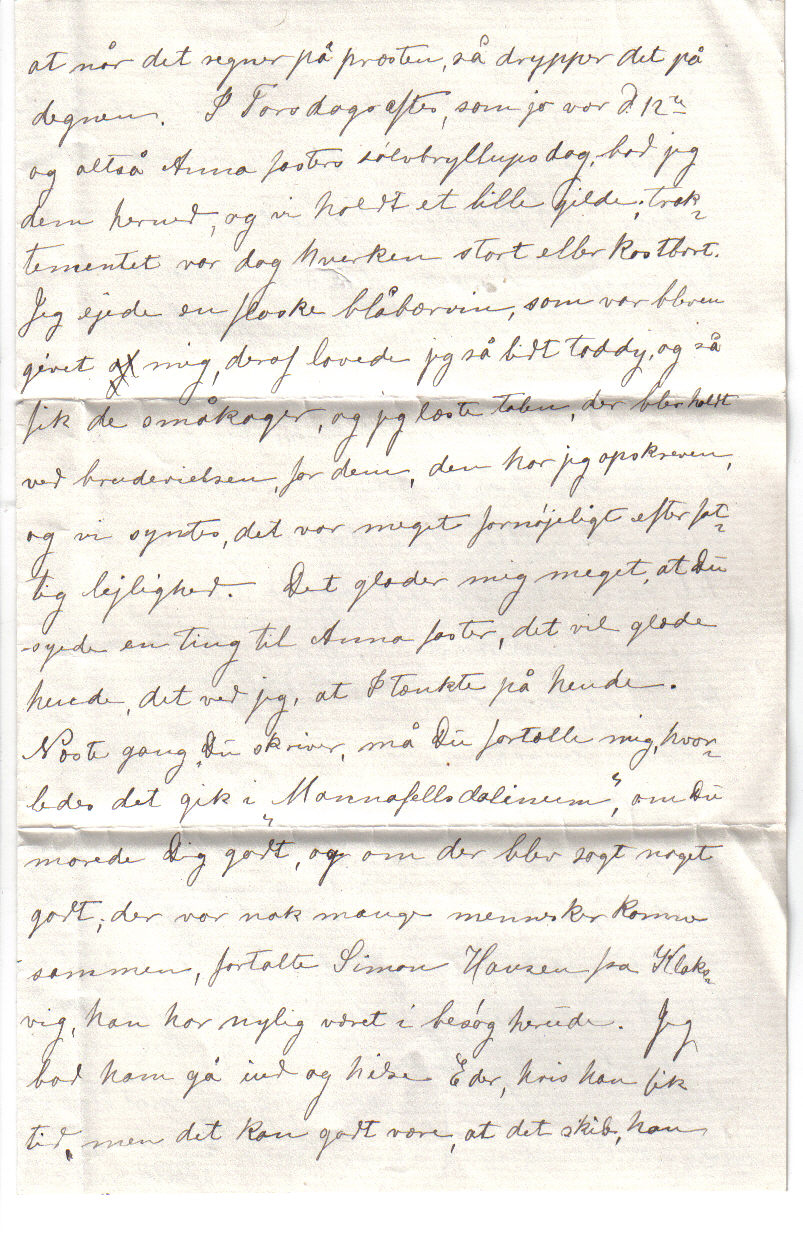 at når det regner på præsten, så drypper det på
degnen. I Torsdagsaftes, som jo var D. 12te
og altså Anna fasters sølvbryllupsdag, bad jeg
dem herned, og vi holdt et lille gilde, trak-
tementet var dog hverken stort eller kostbart.
Jeg ejede en flaske blåbærvin, som var bleven
givet mig, deraf lavede jeg så lidt toddy, og så
fik de småkager, og jeg læste talen, der blev holdt
ved brudevielsen, for dem, den har jeg opskreven,
og vi syntes, det var meget fornøjeligt efter fat-
tig lejlighed. Det glæder mig meget, at Du
syede en ting til Anna faster, det vil glæde
hende, det ved jeg, at I tænkte på hende.
Næste gang Du skriver, må Du fortælle mig, hvor-
ledes det gik i "Mannafellsdalinum", om Du
morede Dig godt, og om der blev sagt noget
godt; der var nok mange mennesker komne
sammen, fortalte Simon Hansen fra Klaks-
vig, han har nylig været i besøg herude. Jeg
bad ham gå ind og hilse Eder, hvis han fik
tid, men det kan godt være, at det skib, han